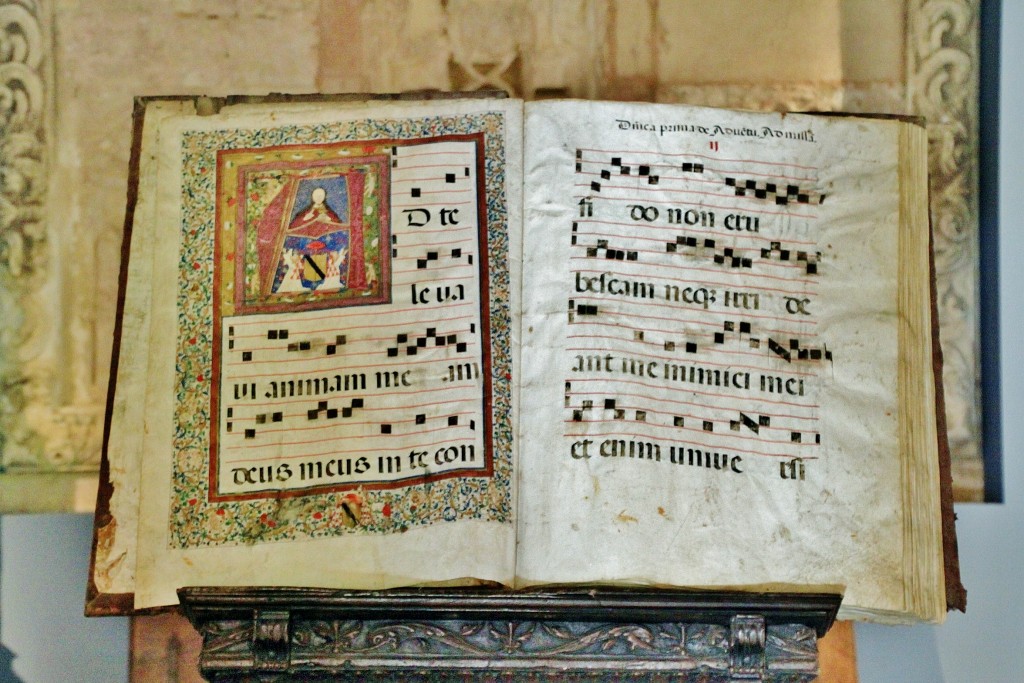 AD te
leva
vi animam me am
deus meus in te con
Dnica prima de Aduetu. Ad missa.
II
fi do non eru
bescam neq; irri de
ant me inimici mei
et enim univer rsi